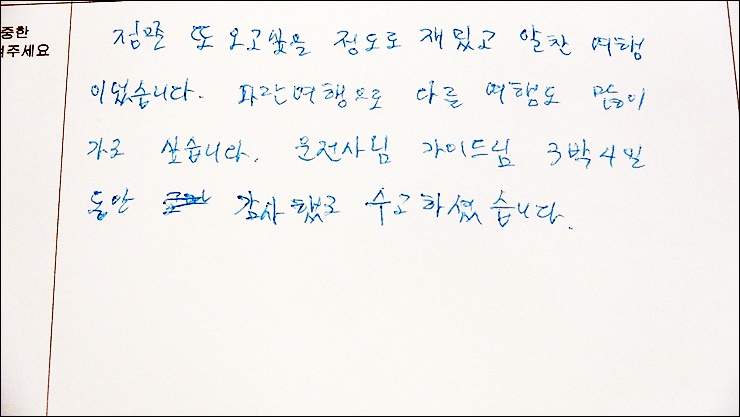 중한
여주세요
정말 또 오고싶을 정도로 재밌고 알찬 여행
이었습니다. 파란여행으로 다른 여행도 많이
가고 싶습니다. 운전사님 가이드님 3박4일
동안 감사했고 수고하셨습니다.